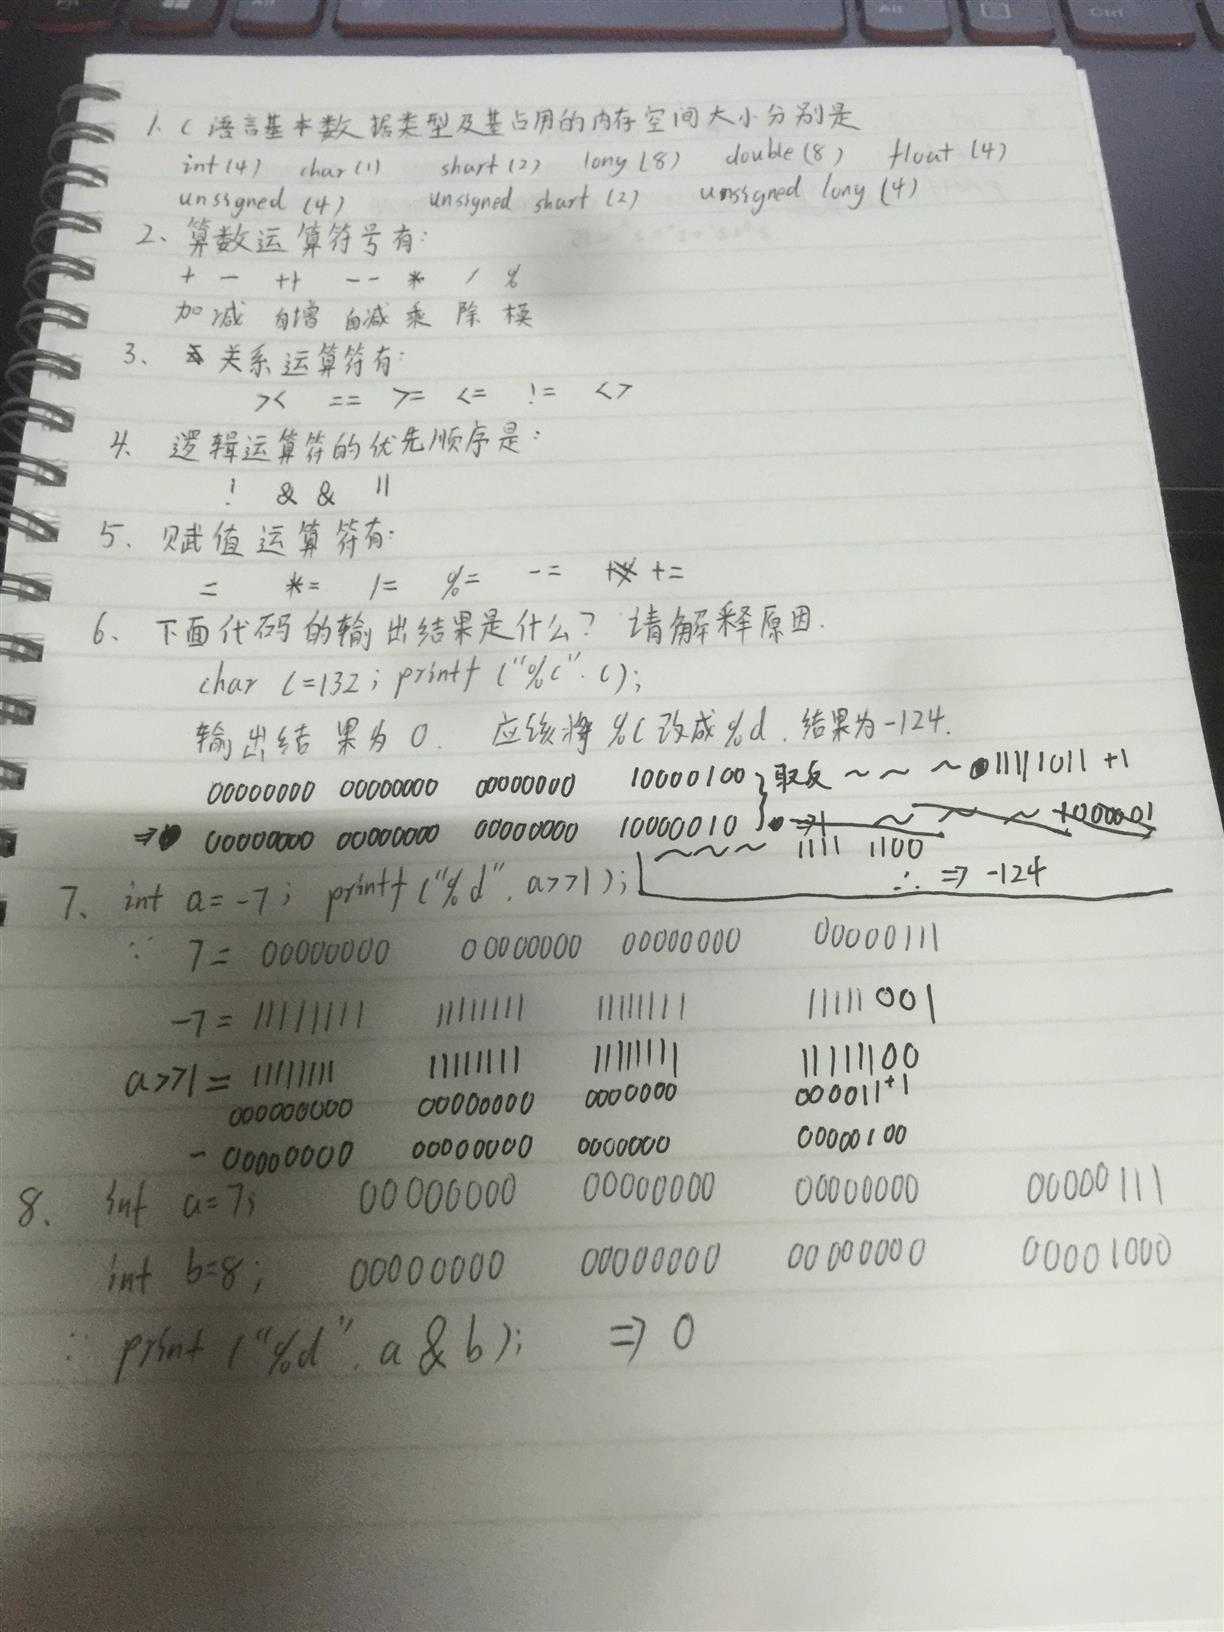 1、C语言基本数据类型及基占用的内存空间大小分别是
int(4) char(1) shart(2) long(8) double(8) float(4)
unsigned(4) unsigned shart(2) unsigned long(4)
2、算数运算符号有:
+ - ++ -- * / %
加 减 自增 自减 乘 除 模
3、关系运算符有:
>< == >= <= != <>
4、逻辑运算符的优先顺序是:
! && ||
5、赋值运算符有:
= *= /= %= -= +=
6、下面代码的输出结果是什么?请解释原因.
char C=132; printf("%c".c);
输出结果为0. 应该将%C改成%d.结果为-124.
00000000 00000000 00000000 10000100 取反 ~ ~ ~ 11111011 +1
=> 00000000 00000000 00000000 10000010
~ ~ ~ 1111 1100
∴ => -124
7、int a=-7; printf("%d".a>>1);
∵ 7= 00000000 00000000 00000000 00000111
-7= 11111111 11111111 11111111 11111001
a>>1= 11111111 11111111 11111111 11111100
000000000 00000000 0000000 000011+1
- 00000000 00000000 0000000 00000100
8、int a=7; 00000000 00000000 00000000 00000111
int b=8; 00000000 00000000 00000000 00001000
∵ print("%d".a&b); => 0